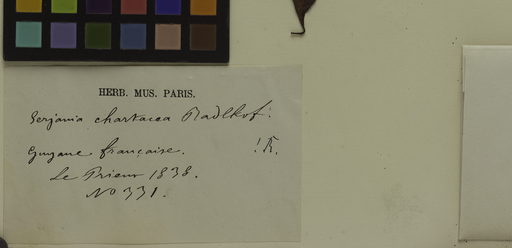 HERB. MUS. PARIS.
Serjania chartacea Radlkof.
Guyane française. ! R.
Le Prieur 1838.
No 331.